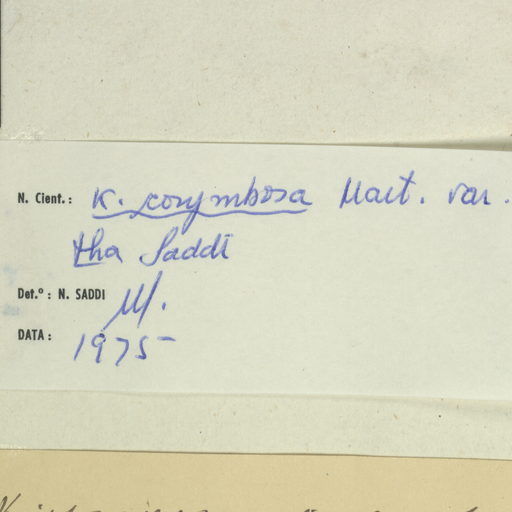 N. Cient.: K. corymbosa Mart. var.
tha Saddi
Det.º: N. SADDI
DATA: 1975